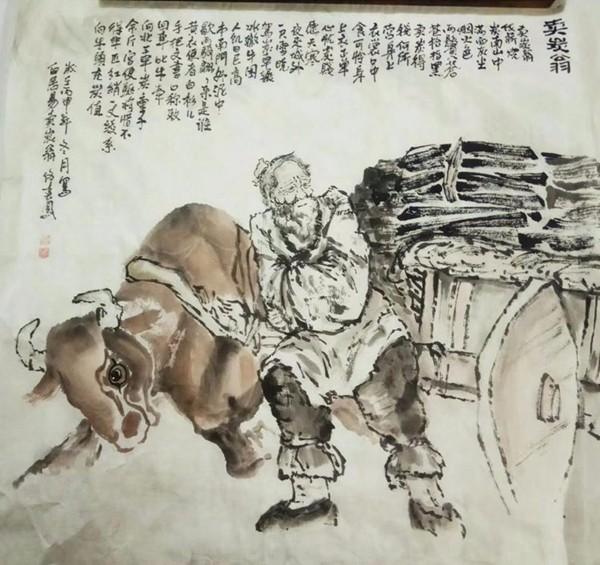 卖炭翁
卖炭翁
伐薪烧
炭南山中
满面灰尘
烟火色
两鬓苍
苍十指黑
卖炭得
钱何所
营身上
衣裳口中
食可怜身
上衣正单
心忧炭贱
愿天寒
夜来城外
一尺雪晓
驾炭车辗
冰辙牛困
人饥日已高
市南门外泥中
歇两骑翩翩来是谁
黄衣使者白衫儿
手把文书口称敕
回车叱牛牵
向北一车炭重千
余斤宫使驱将惜不
得半匹红绡一丈绫系
向牛头充炭值
岁在丙申年冬月写
白居易卖炭翁